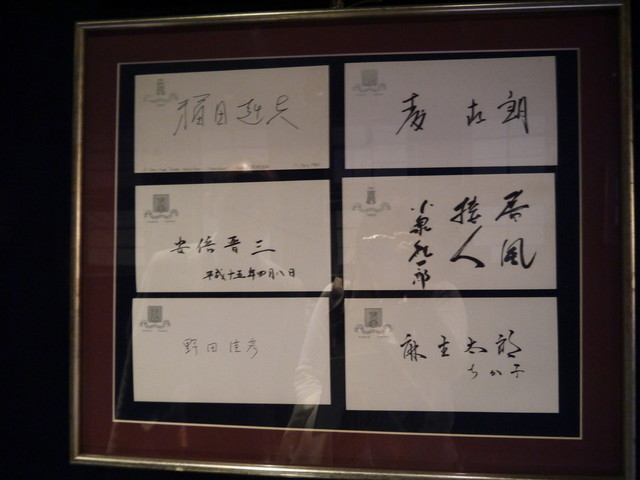 福田赳夫
安倍晋三
平成十五年四月八日
春風
接人
小泉純一郎
野田佳彦
麻生太郎
ちか子